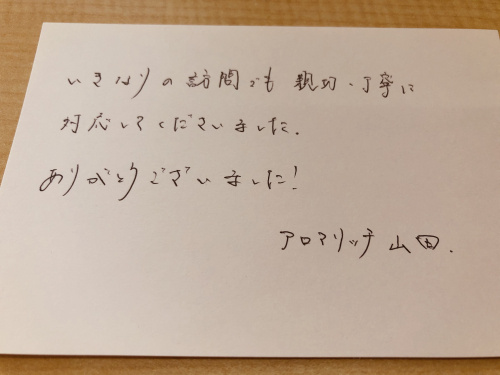 いきなりの訪問でも 親切・丁寧に
対応してくださいました.
ありがとうございました!
アロマリッチ 山田.